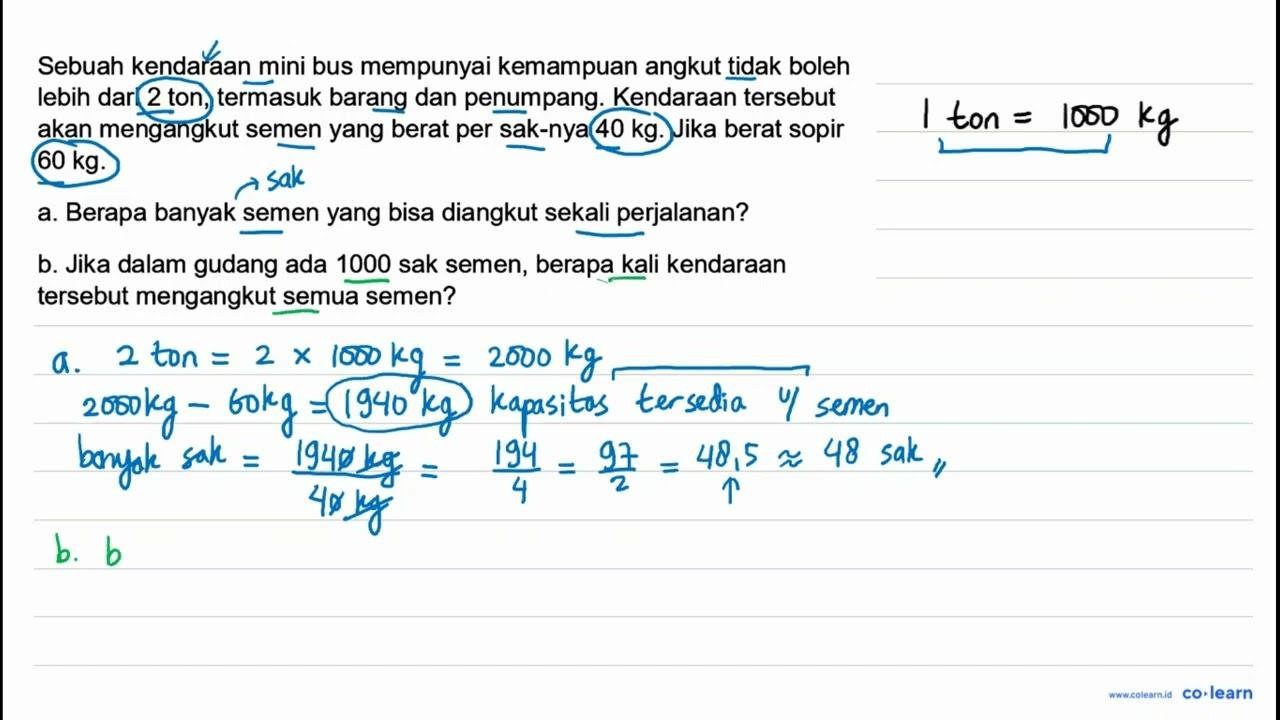 Sebuah kendaraan mini bus mempunyai kemampuan angkut tidak boleh
lebih dari 2 ton, termasuk barang dan penumpang. Kendaraan tersebut
akan mengangkut semen yang berat per sak-nya 40 kg. Jika berat sopir
60 kg.
1 ton = 1000 kg
sak
a. Berapa banyak semen yang bisa diangkut sekali perjalanan?
b. Jika dalam gudang ada 1000 sak semen, berapa kali kendaraan
tersebut mengangkut semua semen?
a. 2 ton = 2 × 1000 kg = 2000 kg
2000kg – 60kg = 1940 kg kapasitas tersedia u/ semen
banyak sak = 1940 kg / 40 kg = 194 / 4 = 97 / 2 = 48,5 ≈ 48 sak //
b. b
www.colearn.id co·learn